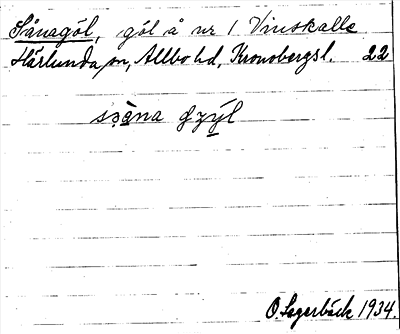 Sånagöl, göl å nr 1 Vinskalle
Härlunda sn, Allbo hd, Kronobergsl. 22
såna gyl
O Lagerbäck 1934.